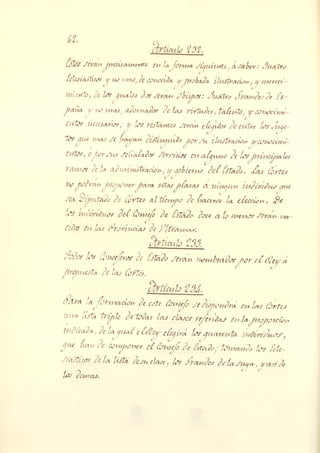 62.
Artículo 232.
Estos serán precisamente en la forma siguiente, á saber: Quatro
Eclesiásticos y no mas, de conocida y probada ilustracion, y mereci-
miento, de los quales dos serán Obispos: Quatro Grandes de Es-
paña y no mas, adornados de las virtudes, talento, y conocimi-
entos necesarios; y los restantes serán elegidos de entre los Suge-
tos que mas se hayan distinguido por su ilustracion y conocimi-
entos, ó por sus señalados servicios en alguno de los principales
ramos de la administracion, y gobierno del Estado. Las Cortes
no podran proponer para estas plazas á ningun individuo que
sea Diputado de Cortes al tiempo de hacerse la eleccion. De
los individuos del Consejo de Estado doce á lo menos serán na-
cidos en las Provincias de Ultramar.
Artículo 233.
Todos los Consejeros de Estado serán nombrados por el Rey á
propuesta de las Cortes.
Artículo 234.
Para la formacion de este Consejo se dispondrá en las Cortes
una lista triple de todas las clases referidas en la proporcion
indicada, de la qual el Rey elegirá los quarenta individuos,
que han de componer el Consejo de Estado; tomando los Ecle-
siasticos de la lista de su clase, los Grandes de la suya, y así de
las demas.